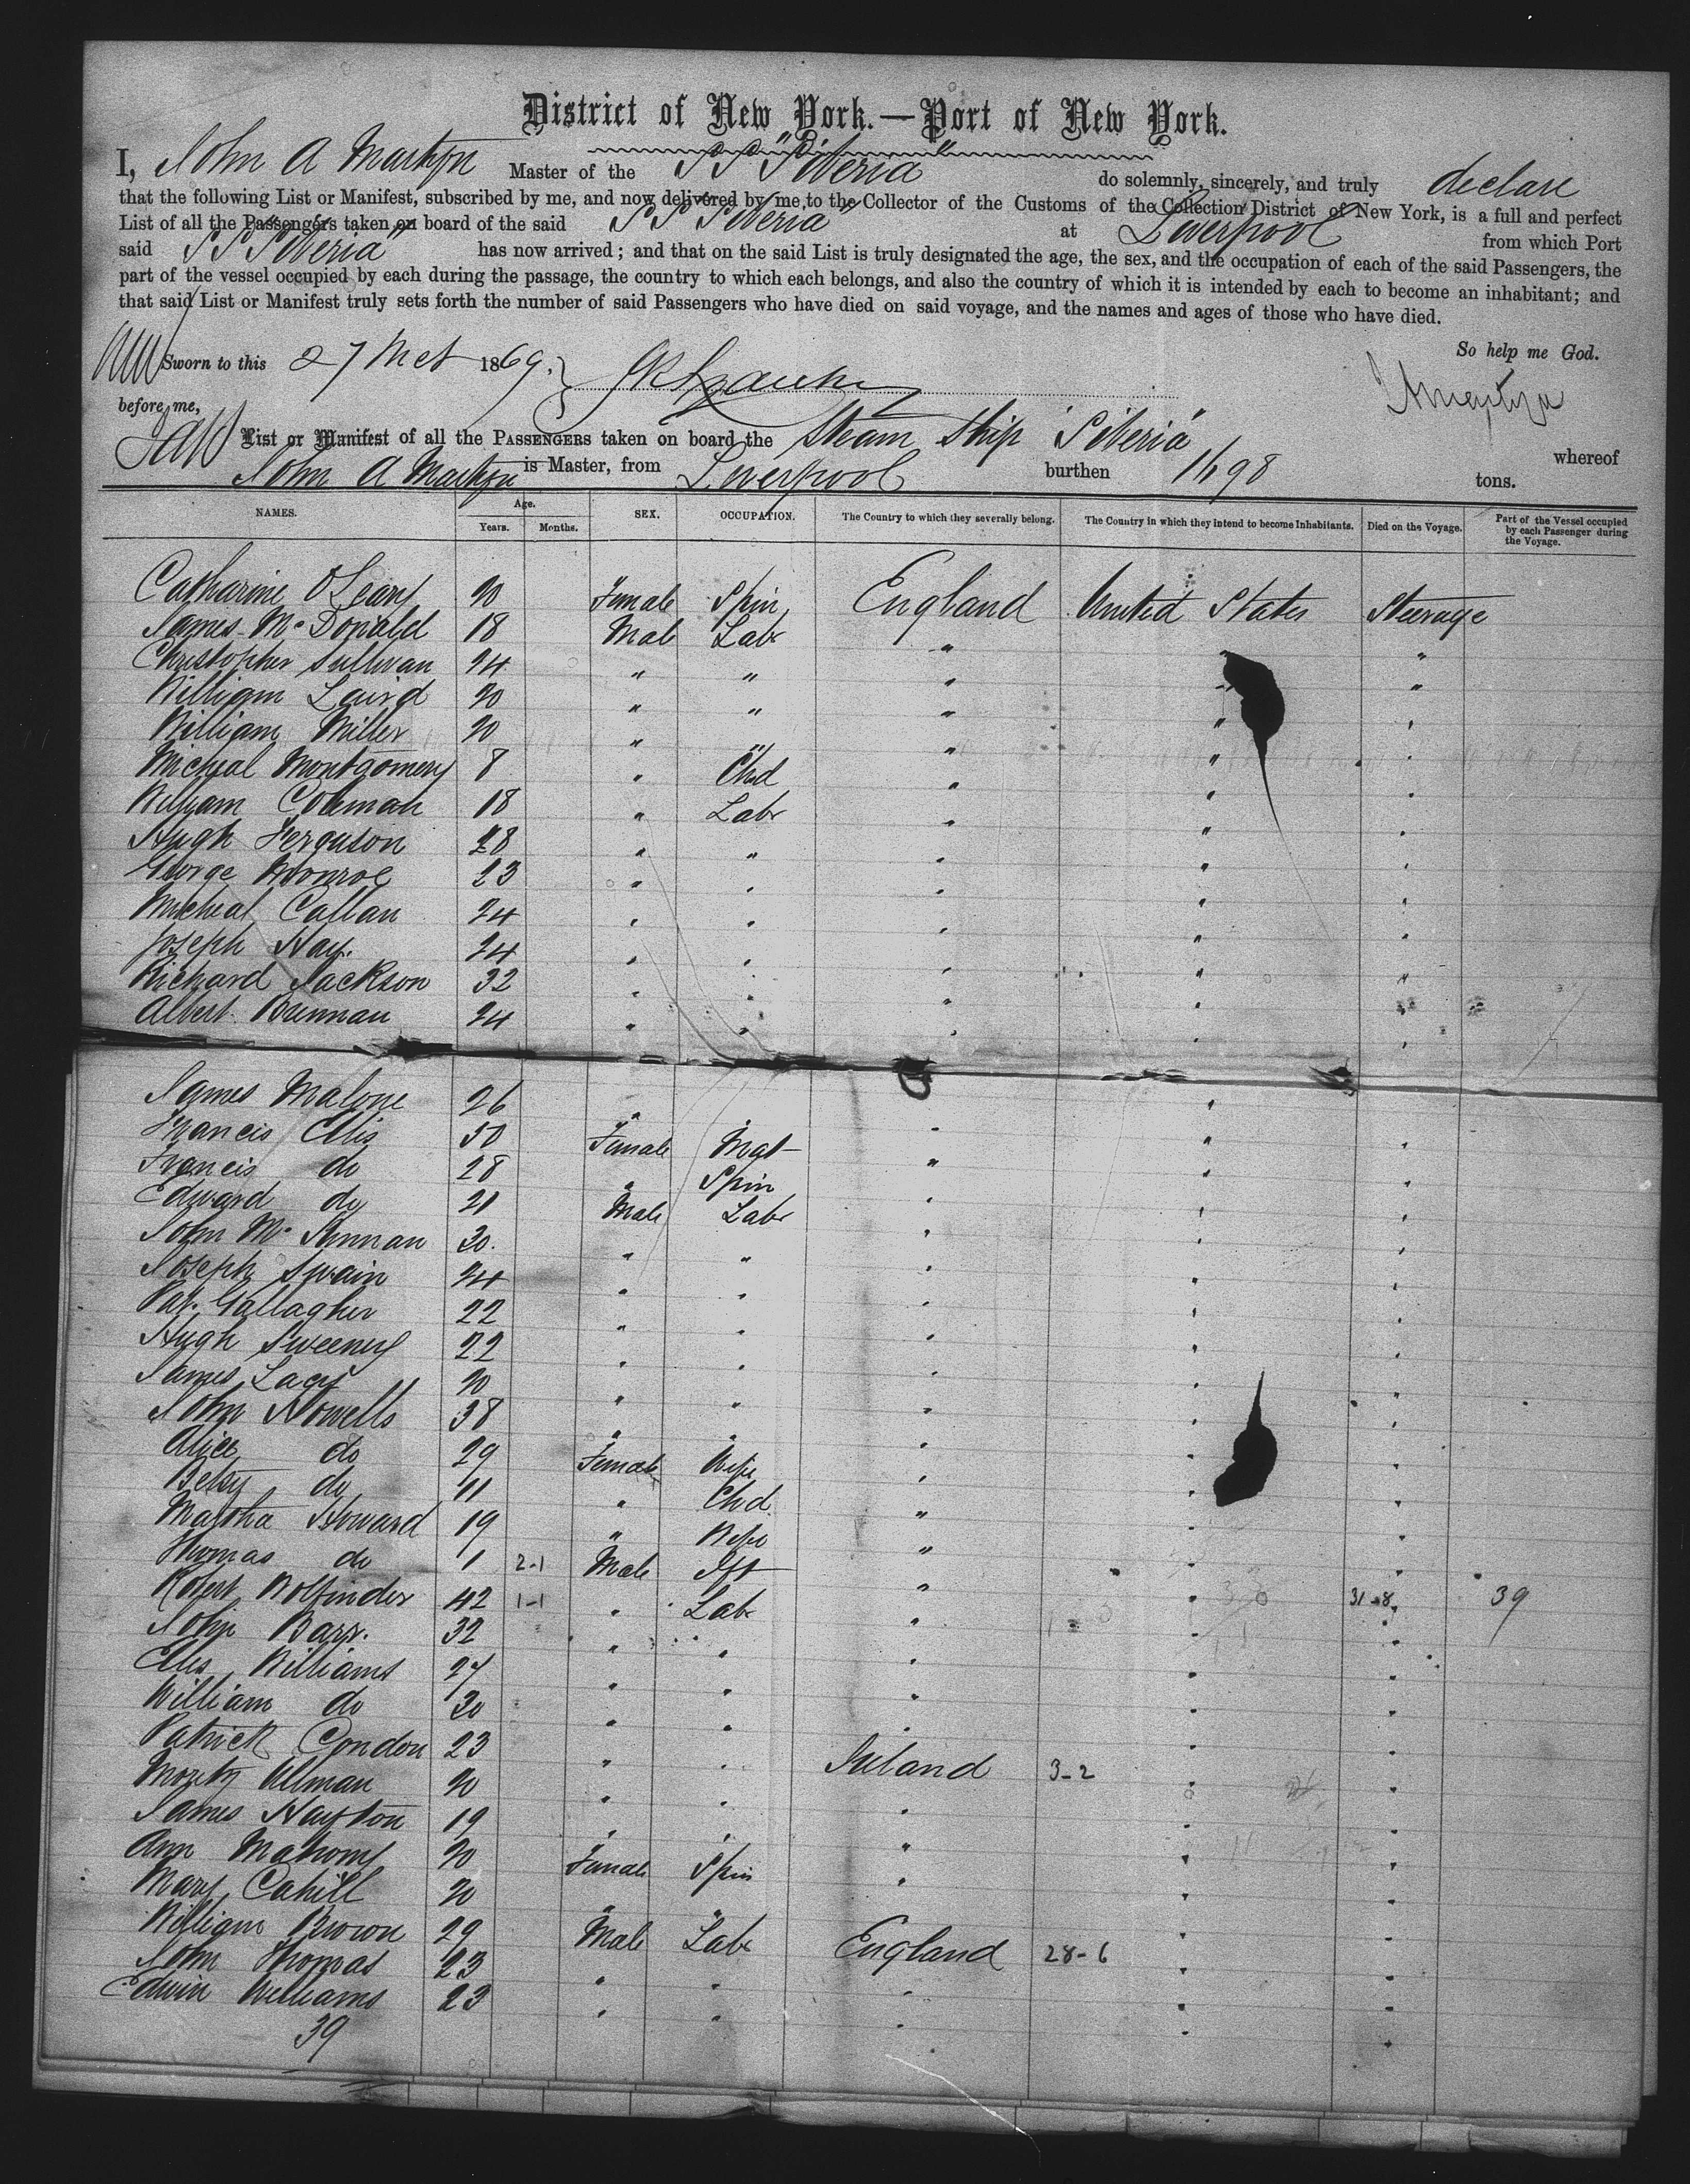 District of New York.—Port of New York.
I, John A Martyn Master of the SS "Siberia" do solemnly, sincerely, and truly declare
that the following List or Manifest, subscribed by me, and now delivered by me to the Collector of the Customs of the Collection District of New York, is a full and perfect
List of all the Passengers taken on board of the said SS Siberia" at Liverpool from which Port
said SS Siberia" has now arrived; and that on the said List is truly designated the age, the sex, and the occupation of each of the said Passengers, the
part of the vessel occupied by each during the passage, the country to which each belongs, and also the country of which it is intended by each to become an inhabitant; and
that said List or Manifest truly sets forth the number of said Passengers who have died on said voyage, and the names and ages of those who have died.
So help me God.
Sworn to this 27 1869.
before me,
List or Manifest of all the PASSENGERS taken on board the Steam Ship "Siberia" whereof
John A Martyn is Master, from Liverpool burthen 1698 tons.
NAMES. Age. Years. Months. SEX. OCCUPATION. The Country to which they severally belong. The Country in which they intend to become Inhabitants. Died on the Voyage. Part of the Vessel occupied by each Passenger during the Voyage.
Catharine OLeary 20 Female Spin England United States Steerage
James McDonald 18 Male Labr " " "
Christopher Sullivan 24 " " " " "
William Laird 20 " " " " "
William Miller 20 " " " " "
Micheal Montgomery 8 " Chd " " "
William Coleman 18 " Labr " " "
Hugh Ferguson 28 " " " " "
George Monroe 23 " " " " "
Micheal Callan 24 " " " " "
Joseph Hay 24 " " " " "
Richard Jackson 32 " " " " "
Albert Brennan 24 " " " " "
James Malone 26 " " " " "
Francis Ellis 50 Female Mat " " "
Francis do 28 " Spin " " "
Edward do 21 Male Labr " " "
John Mc 30. " " " " "
Joseph Swain 24 " " " " "
Pat. Gallagher 22 " " " " "
Hugh Sweeney 22 " " " " "
James Lacy 20 " " " " "
John Howells 38 " " " " "
Alice do 29 Female Wife " " "
Betsy do 11 " Chd " " "
Martha Howard 19 " Wife " " "
Thomas do 1 2-1 Male Ift " " "
Robert 42 1-1 " Labr " " 31-8 39
John Barr. 32 " " " " "
Ellis Williams 27 " " " " "
William do 30 " " " " "
Patrick Condon 23 " " Ireland 3-2 " "
Moritz Ullman 20 " " " " "
James 19 " " " " "
Ann Mahony 20 Female Spin " " "
Mary Cahill 20 " " " " "
William Brown 29 Male Labr England 28-6 " "
John Thomas 23 " " " " "
Edwin Williams 23 " " " " "
39